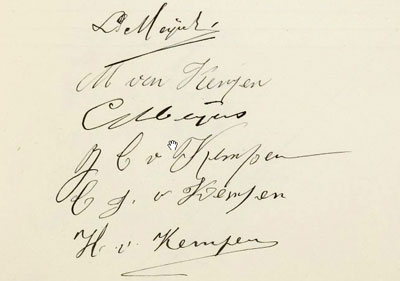 D Meijer
M van Kempen
C Meijus
J C v Kempen
C J. v Kempen
H. v. Kempen